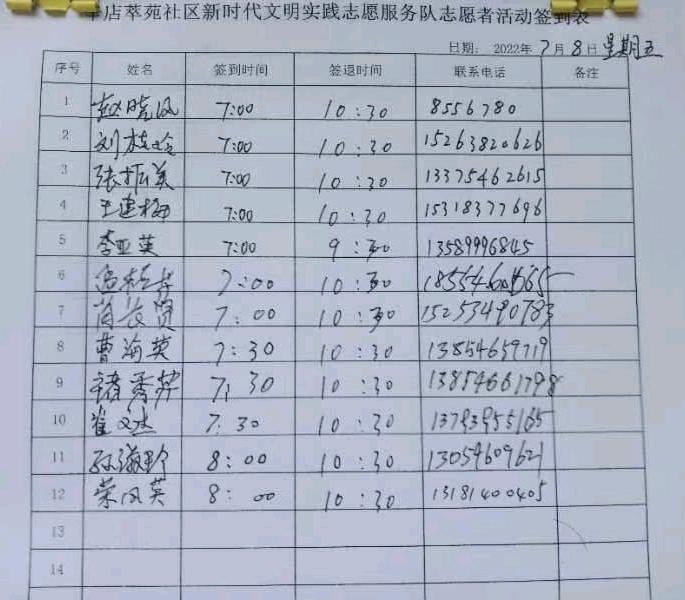 店萃苑社区新时代文明实践志愿服务队志愿者活动签到表
日期: 2022年 7月 8日 星期五
序号 姓名 签到时间 签退时间 联系电话 备注
1 赵晓凤 7:00 10:30 8556780
2 刘枝玲 7:00 10:30 15263820626
3 张振美 7:00 10:30 13375462615
4 王建梅 7:00 10:30 15318377696
5 李亚英 7:00 9:30 13589996845
6 7:00 10:30
7 7:00 10:30 15253490783
8 曹海英 7:30 10:30 13854659719
9 褚秀萍 7:30 10:30 13854661798
10 崔文杰 7:30 10:30 13793955165
11 8:00 10:30 13054609621
12 荣凤英 8:00 10:30 13181400405
13
14